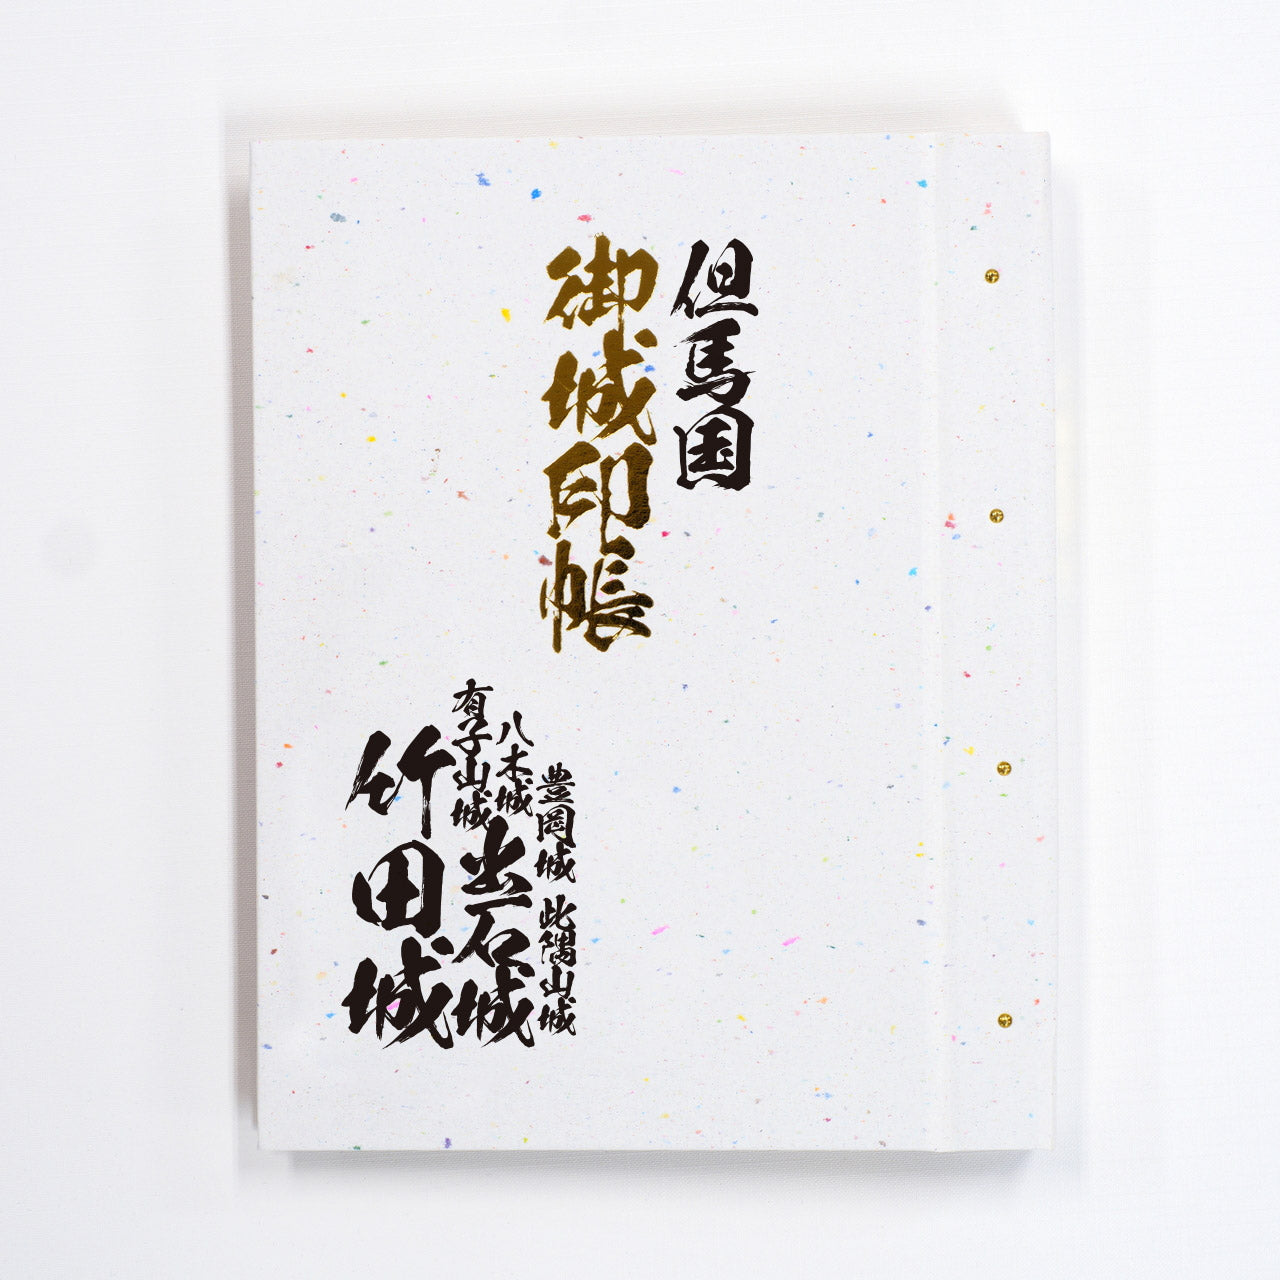 但馬国
御城印帳
豊岡城
此隅山城
八木城
有子山城
出石城
竹田城